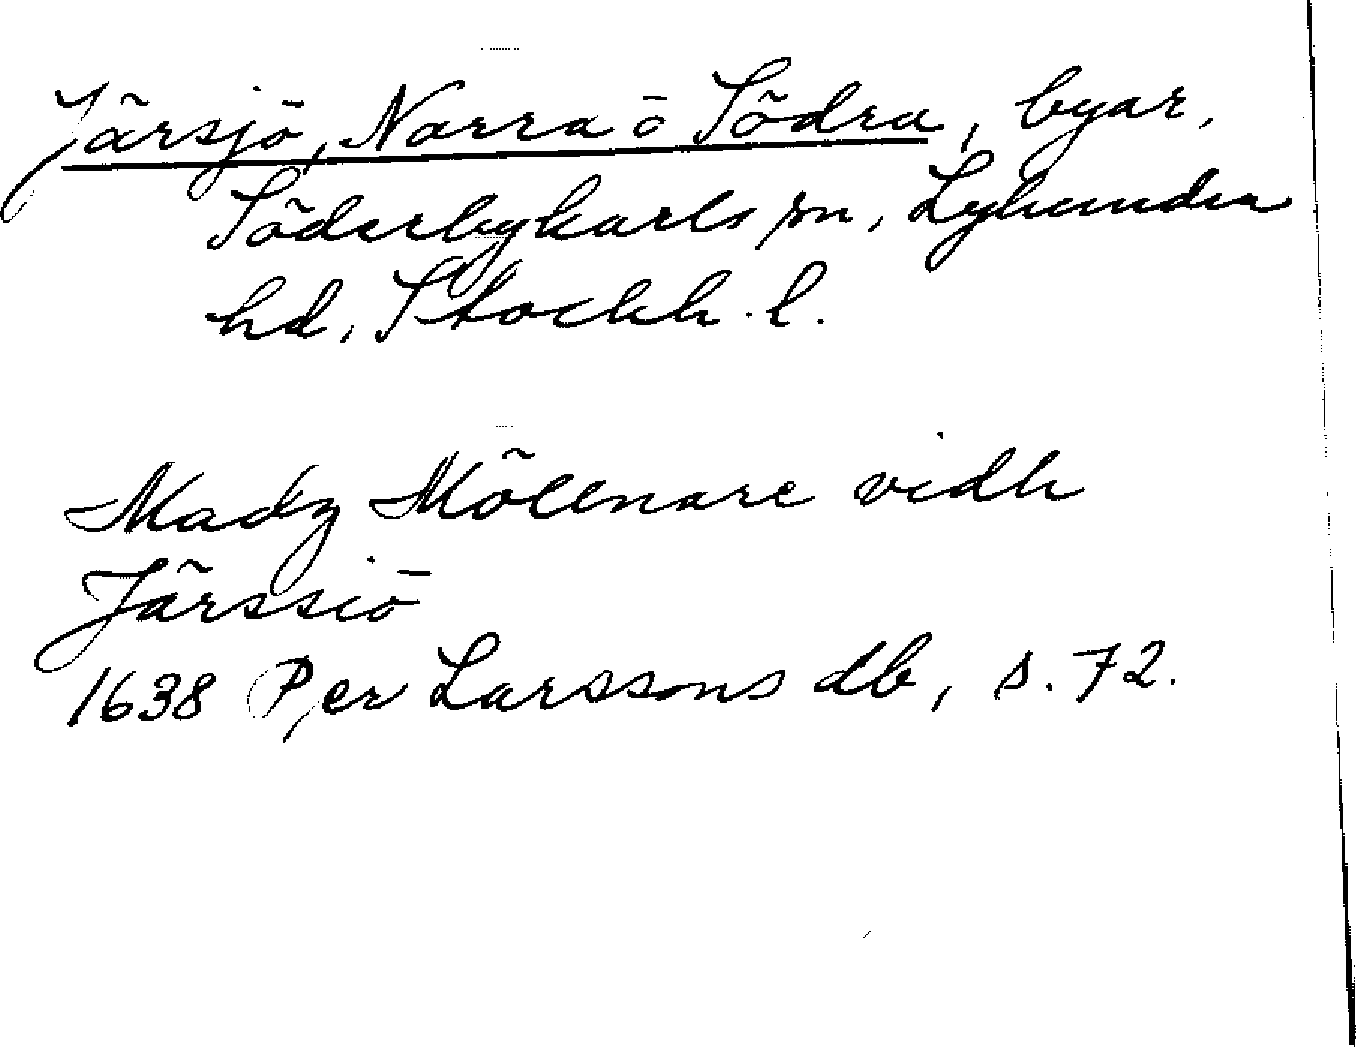 Järsjö, Norra o Södra, byar,
Söderbykarls sn, Lyhundra
hd, Stockh. l.
Madz Möllnare vidh
Järssiö
1638 Per Larssons db, s. 72.